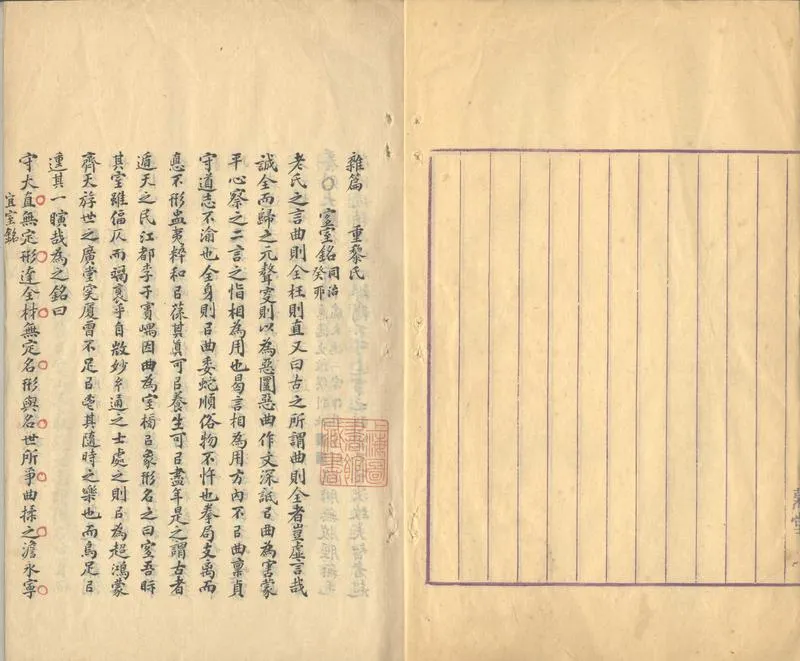 雜篇　重黎氏
室銘 同治
老氏之言曲則全枉則直又曰古之所謂曲則全者豈虛言哉
誠全而歸之元聱叟則以為惡圜惡曲作文深詆㠯曲為害蒙
平心察之二言之恉相為用也曷言相為用方內不㠯曲稟貞
守道志不渝也全身則㠯曲委蛇順俗物不忤也拳局支离而
悳不形蚩夷粹和㠯葆其眞可㠯養生可㠯盡年是之謂古者
遁天之民江都李子賓嵎因曲為室榜㠯象形名之曰室吾眎
其室雖偪仄而褱乎自㪚妙通之士處之則㠯為超鴻蒙
齊天游世之廣堂突厦曾不足㠯其隨時之樂也而烏足㠯
其一瞚哉為之銘曰
守大直無定形達全材無定名形與名世所爭曲揉之澹永寧
室銘
上海圖書館藏書